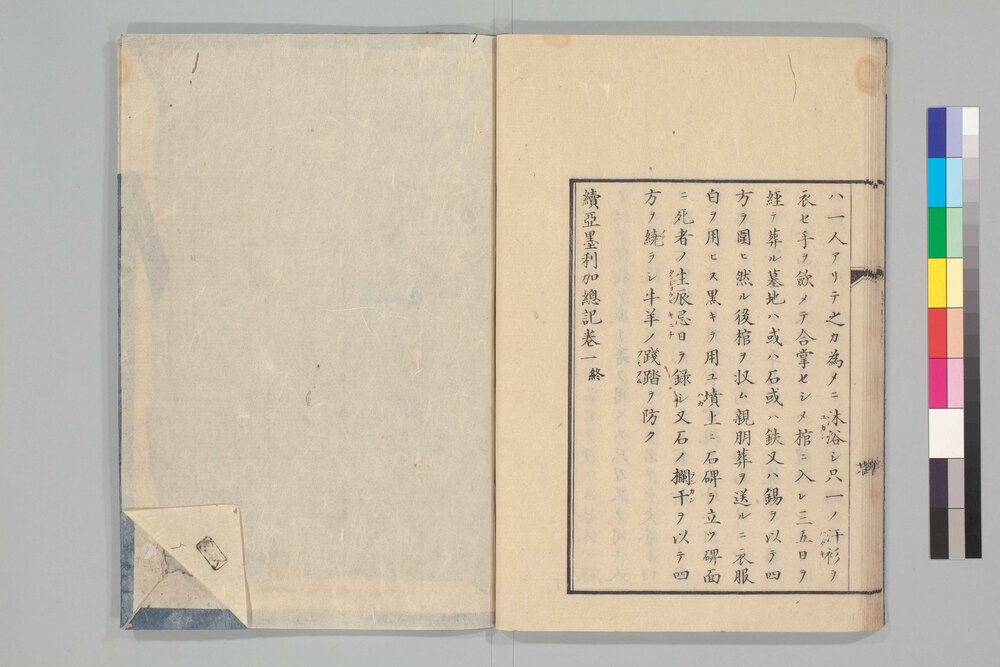 ハ一人アリテ之カ為メニ沐浴シ只一ノ汗衫ヲ
衣セ手ヲ斂メテ合掌セシメ棺ニ入レ三五日ヲ
経テ葬ル墓地ハ或ハ石或ハ鉄又ハ錫ヲ以テ四
方ヲ圍ヒ然ル後棺ヲ収ム親朋葬ヲ送ルニ衣服
白ヲ用ヒス黒キヲ用ユ墳上ニ石碑ヲ立ツ碑面
ニ死者ノ生辰忌日ヲ録シ又石ノ攔干ヲ以テ四
方ヲ繞ラシ牛羊ノ踐踏ヲ防ク
續亞墨利加總記巻一終